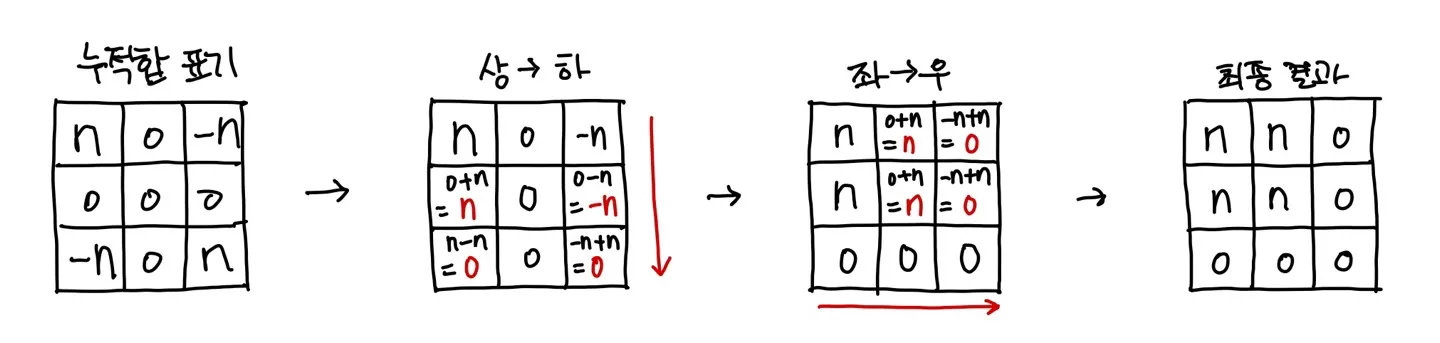 누적합 표기
n 0 -n
0 0 0
-n 0 n
→
상→하
n 0 -n
0+n
= n
0
0-n
= -n
n-n
= 0
0
-n+n
= 0
→
좌→우
n
0+n
= n
-n+n
= 0
n
0+n
= n
-n+n
= 0
0 0 0
→
최종 결과
n n 0
n n 0
0 0 0